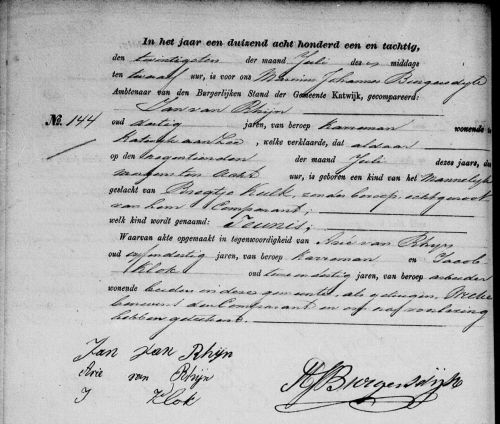 In het jaar een duizend acht honderd een en tachtig,
den twintigsten der maand Juli des middags
ten twaalf uur, is voor ons Marinus Johannes Burgersdijk
Ambtenaar van den Burgerlijken Stand der Gemeente Katwijk, gecompareerd:
Jan van Rhijn
No. 144 oud dertig jaren, van beroep karreman wonende te
Katwijk aan Zee, welke verklaarde, dat aldaar
op den negentienden der maand Juli dezes jaars, des
morgens ten acht uur, is geboren een kind van het Mannelijk
geslacht van Bregtje Kulk, zonder beroep, echtgenoot
van hem Comparant,
welk kind wordt genaamd: Teunis,
Waarvan akte opgemaakt in tegenwoordigheid van Arie van Rhijn
oud vijfendertig jaren, van beroep karreman en Jacob
Klok oud twee en dertig jaren, van beroep arbeider
wonende beiden in deze gemeente, als getuigen, welke
benevens den Comparant en op na voorlezing
hebben geteekend.
Jan van Rhijn
Arie van Rhijn
J Klok
MJBurgersdijk